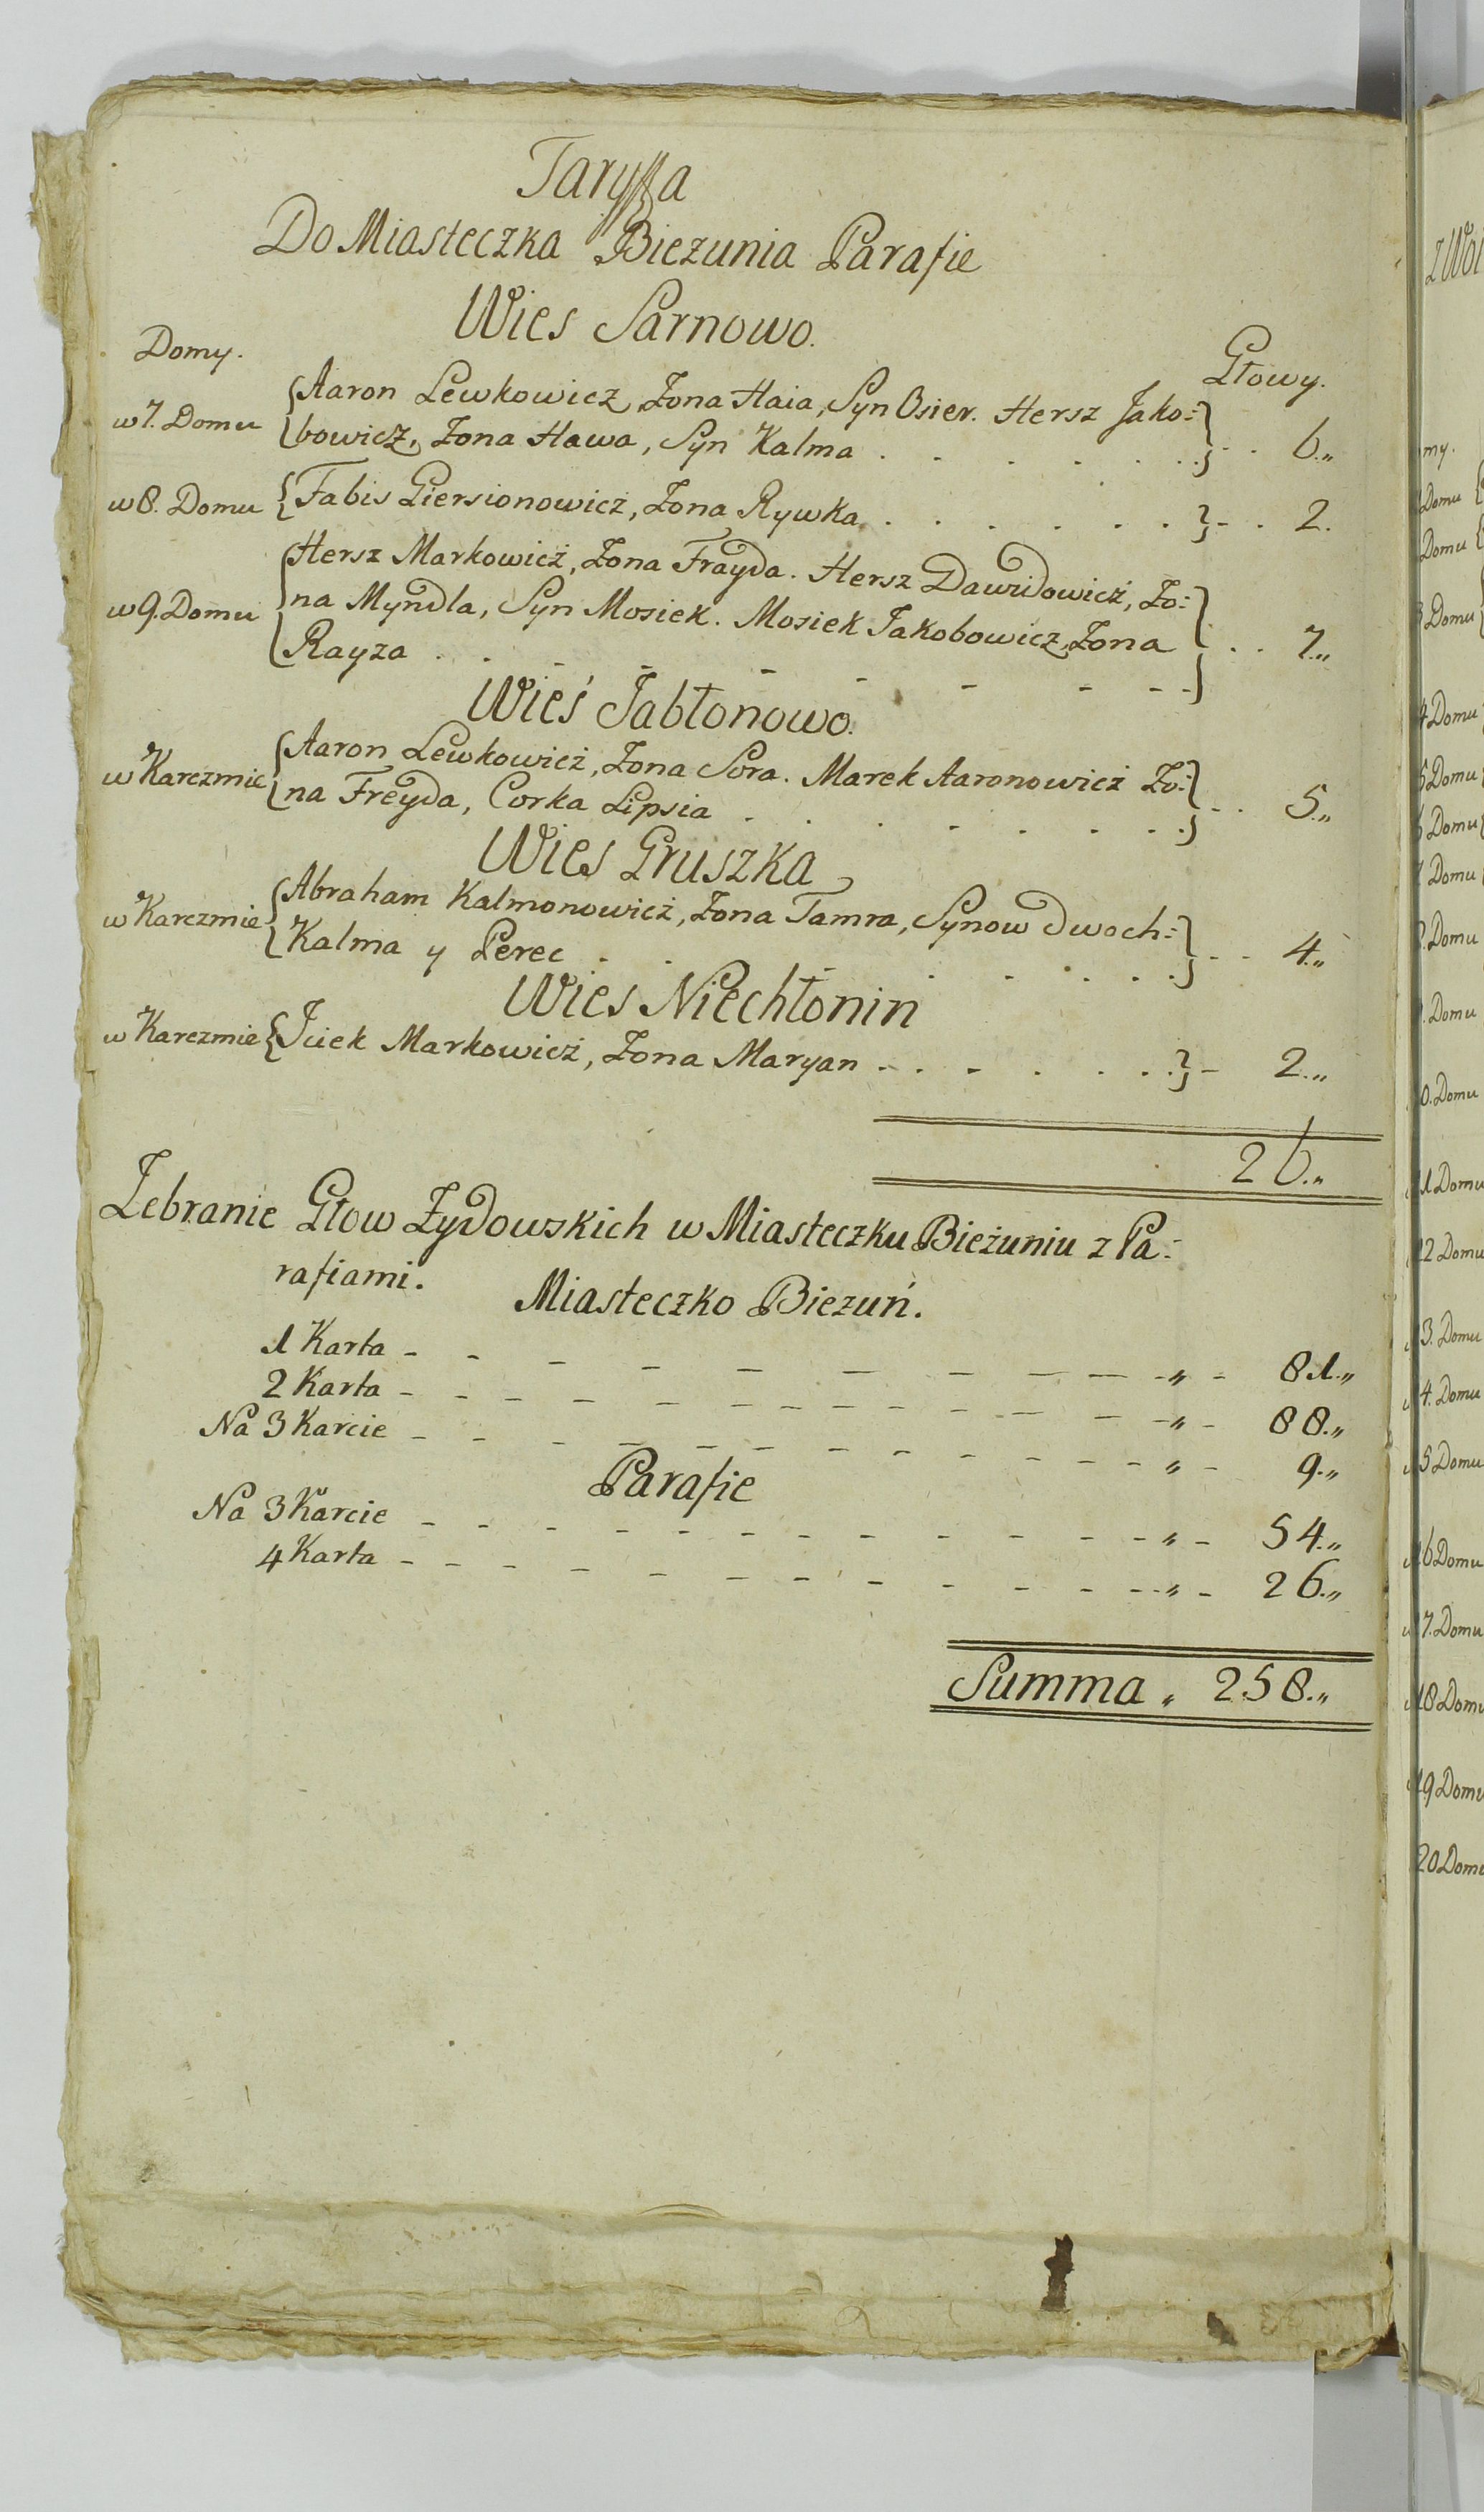 Taryffa
Do Miasteczka Biezunia Parafie
Wies Sarnowo.
Domy.
Głowy.
w 7. Domu {Aaron Lewkowicz, Zona Haia, Syn Osier. Hersz Jako=
bowicz, Zona Hawa, Syn Kalma . . . . . . } . . 6.„
w 8. Domu {Fabis Giersionowicż, Zona Rywka . . . . . . } - . 2.
w 9. Domu {Hersz Markowicż, Zona Frayda. Hersz Dawidowicż, Zo=
na Myndla, Syn Mosiek. Mosiek Jakobowicz, Zona
Rayza . . - - - - - - - } . . 7.„
Wieś Jabłonowo.
w Karczmie {Aaron Lewkowicż, Zona Sora. Marek Aaronowicż Zo=
na Freyda, Corka Lipsia . . . - - - - } . . 5.„
Wies Gruszka
w Karczmie {Abraham Kalmonowicż, Zona Tamra, Synow dwoch=
Kalma y Perec . . . - - . . . . } - - 4.„
Wies Niechłonin
w Karczmie {Jcek Markowicż, Zona Maryan - . - . . . } - 2.„
26.„
Zebranie Głow Zydowskich w Miasteczku Bieżuniu z Pa=
rafiami.
Miasteczko Biezuń.
1 Karta - - - - - - - - - „ - 81.„
2 Karta - - - - - - - - - „ - 88.„
Na 3 Karcie - - - - - - - - - „ - 9.„
Parafie
Na 3 Karcie - - - - - - - - - „ - 54.„
4 Karta - - - - - - - - - „ - 26.„
Summa „ 258.„
my.
Domu
Domu
Domu
4 Domu
5 Domu
6 Domu
7 Domu
Domu
Domu
0. Domu
1 Domu
2 Domu
3. Domu
4. Domu
5 Domu
6 Domu
7. Domu
18 Domu
19 Domu
20 Domu